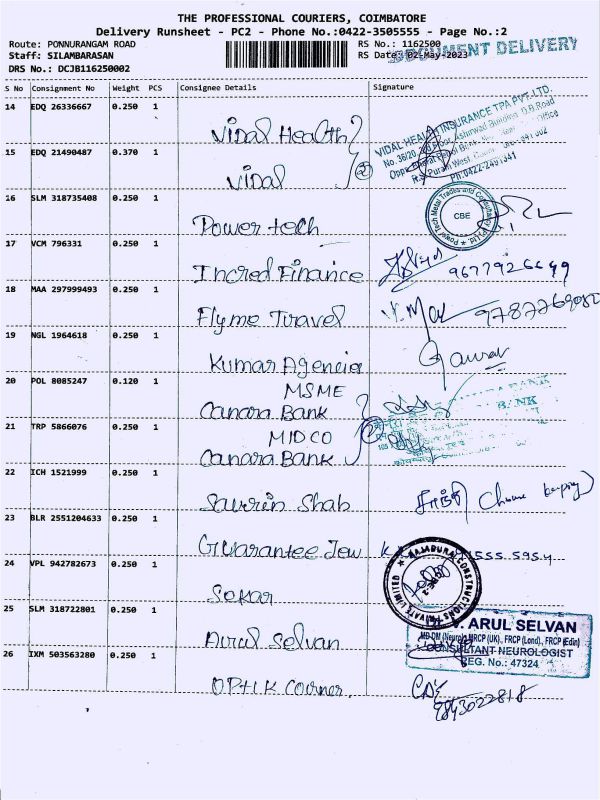 THE PROFESSIONAL COURIERS, COIMBATORE
Delivery Runsheet - PC2 - Phone No.:0422-3505555 - Page No.:2
Route: PONNURANGAM ROAD RS No.: 1162500
DOCUMENT DELIVERY
Staff: SILAMBARASAN RS Date: 02-May-2023
DRS No.: DCJB116250002
S No Consignment No Weight PCS Consignee Details Signature
14 EDQ 26336667 0.250 1 Vidal Health
VIDAL HEALTH INSURANCE TPA PVT.LTD.
Ph:0422-2491341
15 EDQ 21490487 0.370 1 Vidal
2
16 SLM 318735408 0.250 1 Power tech
CBE
17 VCM 796331 0.250 1 Incred Finance 9677926649
18 MAA 297999493 0.250 1 Flyme Travel
19 NGL 1964618 0.250 1 Kumar Agencie Gaurav
20 POL 8085247 0.120 1 MSME
Canara Bank
BANK
21 TRP 5866076 0.250 1 MIDCO
Canara Bank
2
22 ICH 1521999 0.250 1 Savrin Shah
23 BLR 2551204633 0.250 1 Guarantee Jew
24 VPL 942782673 0.250 1 Sekar
RAJADURAI CONSTRUCTIONS PRIVATE LIMITED
25 SLM 318722801 0.250 1 Arul Selvan
V. ARUL SELVAN
MD DM (Neuro), MRCP (UK), FRCP (Lond), FRCP (Edin)
CONSULTANT NEUROLOGIST
REG. No.: 47324
26 IXM 503563280 0.250 1 Optik Corner.
9843022818